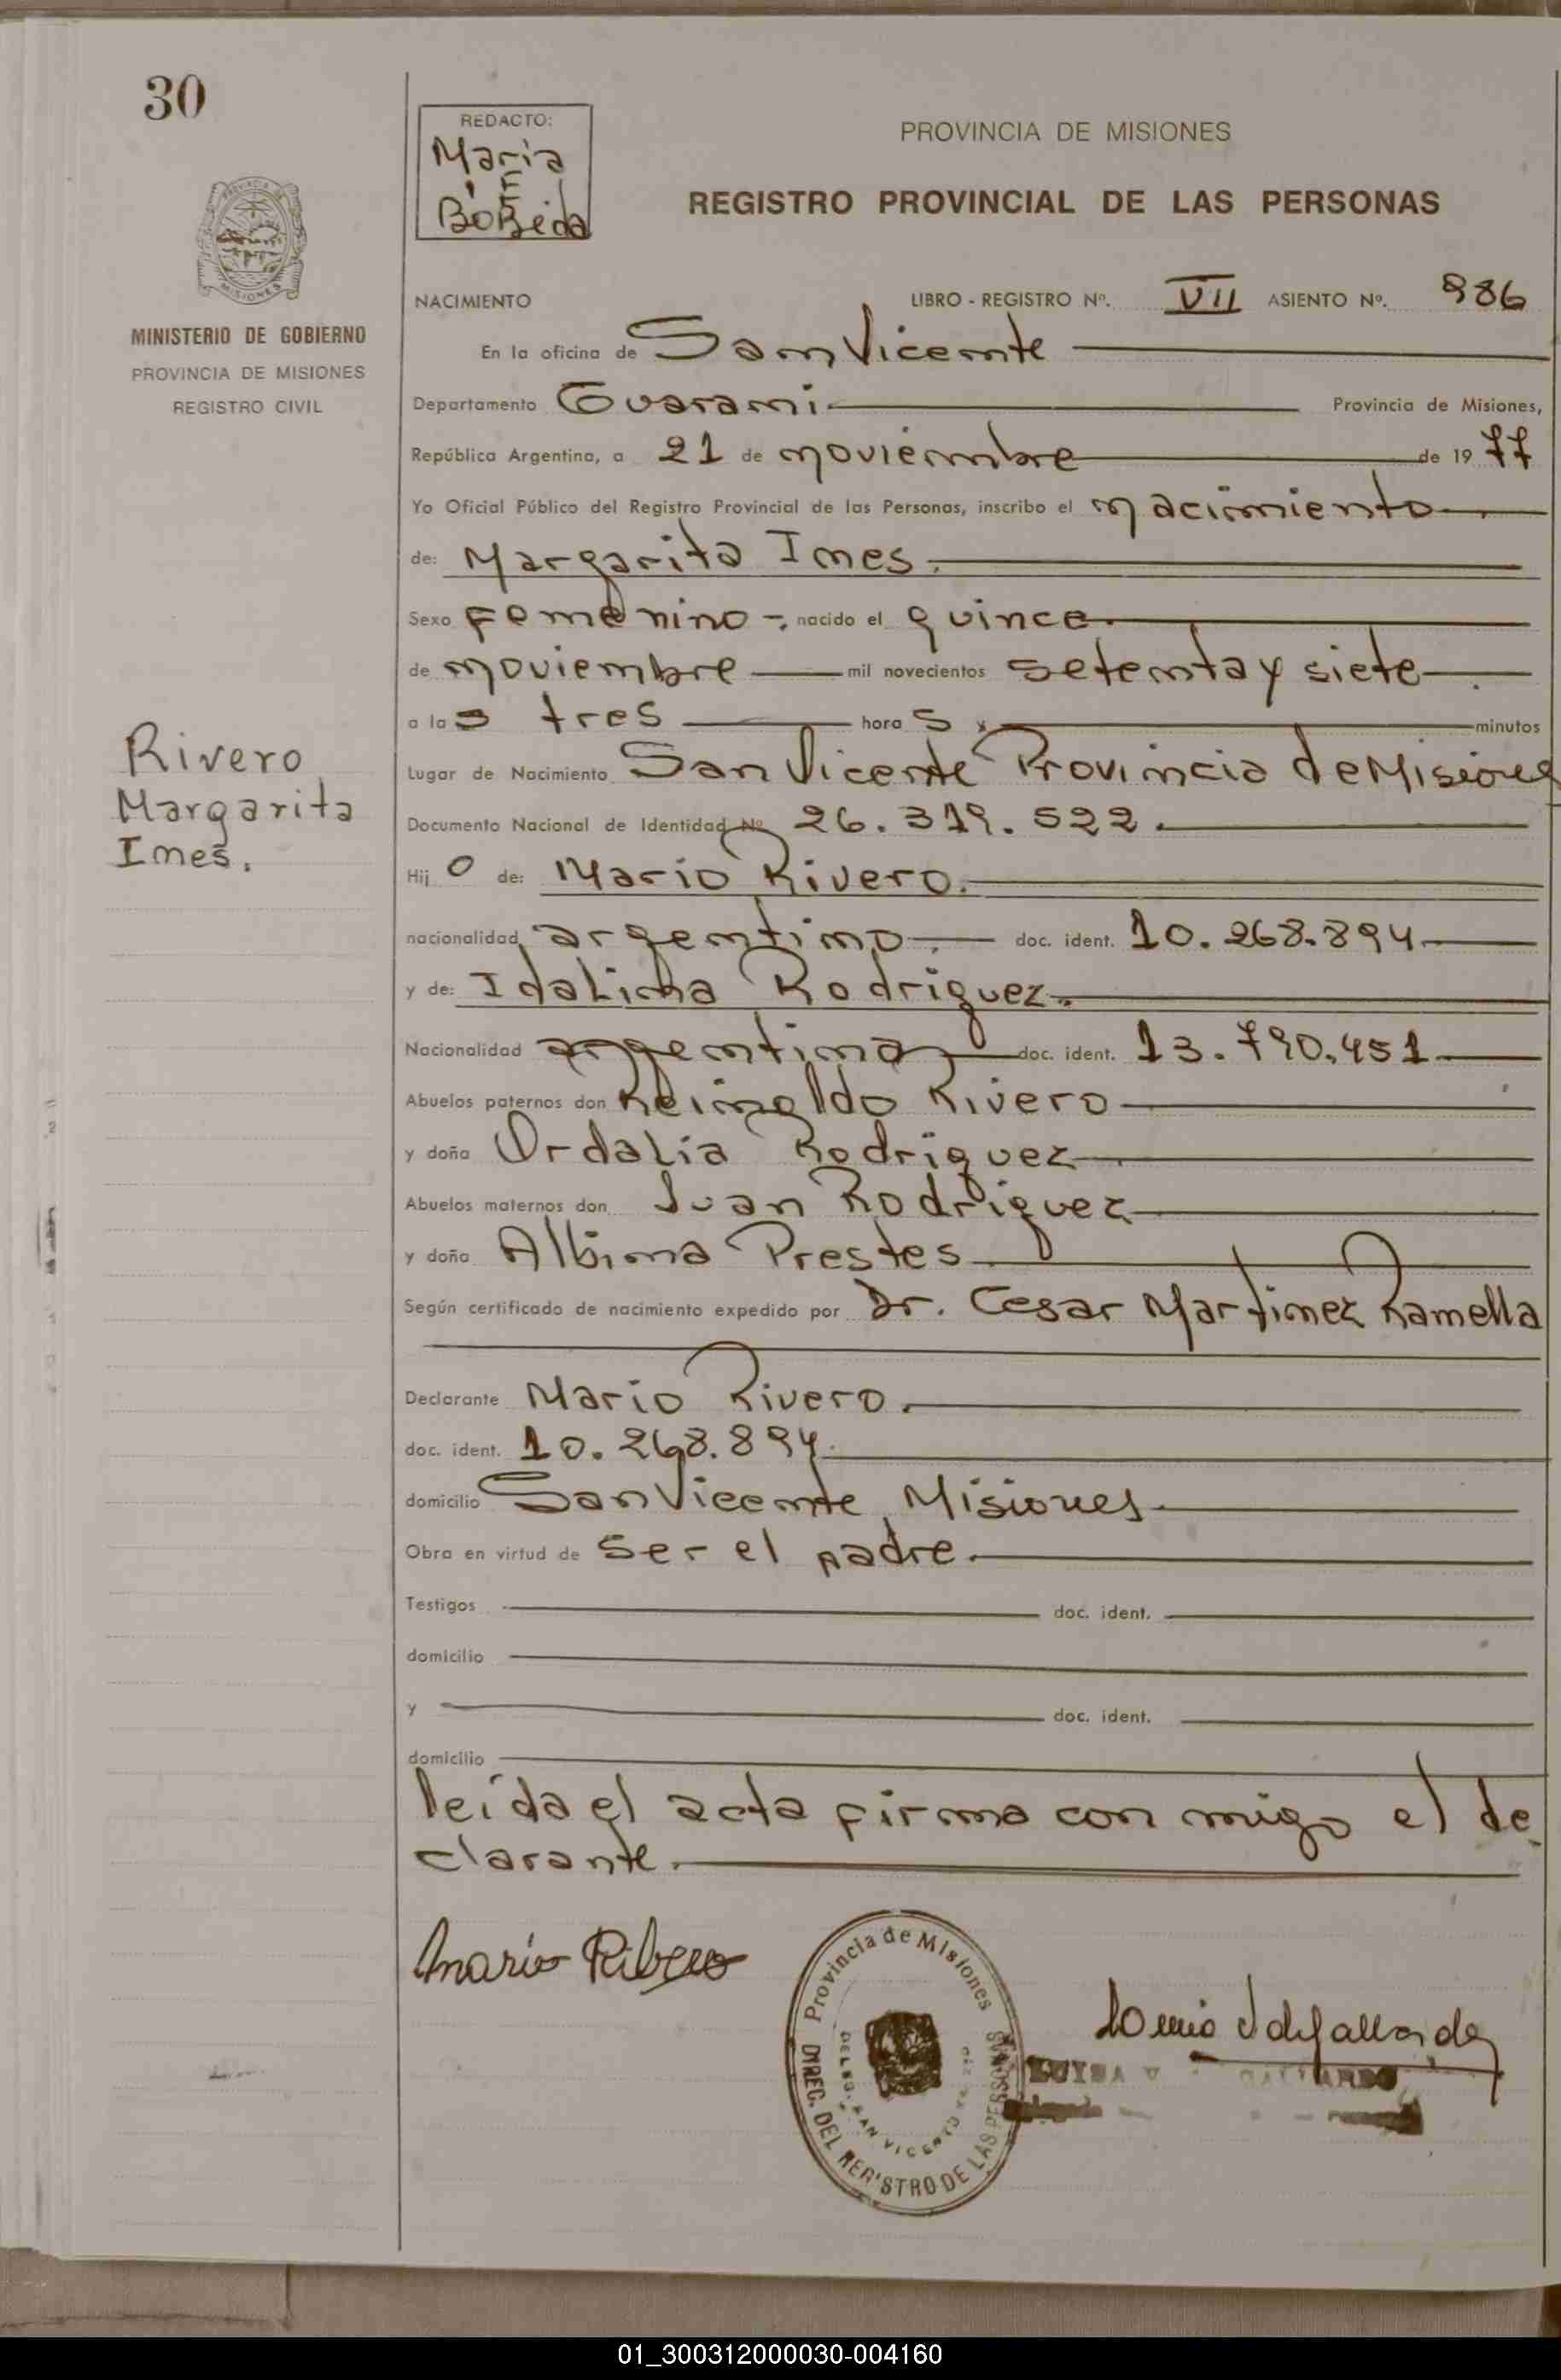 30
REDACTO:
Maria
E
Bobeda
PROVINCIA DE MISIONES
REGISTRO PROVINCIAL DE LAS PERSONAS
MISIONES
MINISTERIO DE GOBIERNO
PROVINCIA DE MISIONES
REGISTRO CIVIL
NACIMIENTO LIBRO - REGISTRO Nº. VII ASIENTO Nº. 986
En la oficina de San Vicente
Departamento Guarani Provincia de Misiones,
República Argentina, a 21 de noviembre de 1977
Yo Oficial Público del Registro Provincial de las Personas, inscribo el nacimiento
de: Margarita Ines.
Sexo femenino - nacido el quince
de noviembre mil novecientos setenta y siete
a las tres horas y minutos
Rivero
Margarita
Ines.
Lugar de Nacimiento San Vicente Provincia de Misiones
Documento Nacional de Identidad Nº 26.319.522.
Hijo de: Mario Rivero.
nacionalidad argentino doc. ident. 10.268.894
y de: Idalina Rodriguez.
Nacionalidad argentina doc. ident. 13.790.451
Abuelos paternos don Reinaldo Rivero
y doña Ordalia Rodriguez
Abuelos maternos don Juan Rodriguez
y doña Albina Prestes
Según certificado de nacimiento expedido por Dr. Cesar Martinez Ramella
Declarante Mario Rivero.
doc. ident. 10.268.894
domicilio San Vicente Misiones
Obra en virtud de ser el padre.
Testigos doc. ident.
domicilio
y doc. ident.
domicilio
leída el acta firma con migo el de
clarante.
Mario Ribero
Provincia de Misiones
DIREC. DEL REGISTRO DE LAS PERSONAS
SAN VICENTE
LUISA GALLARDO
01_300312000030-004160